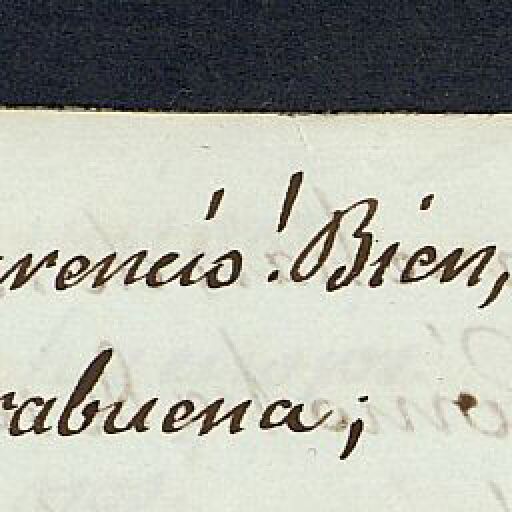 rencio! Bien,
rabuena;